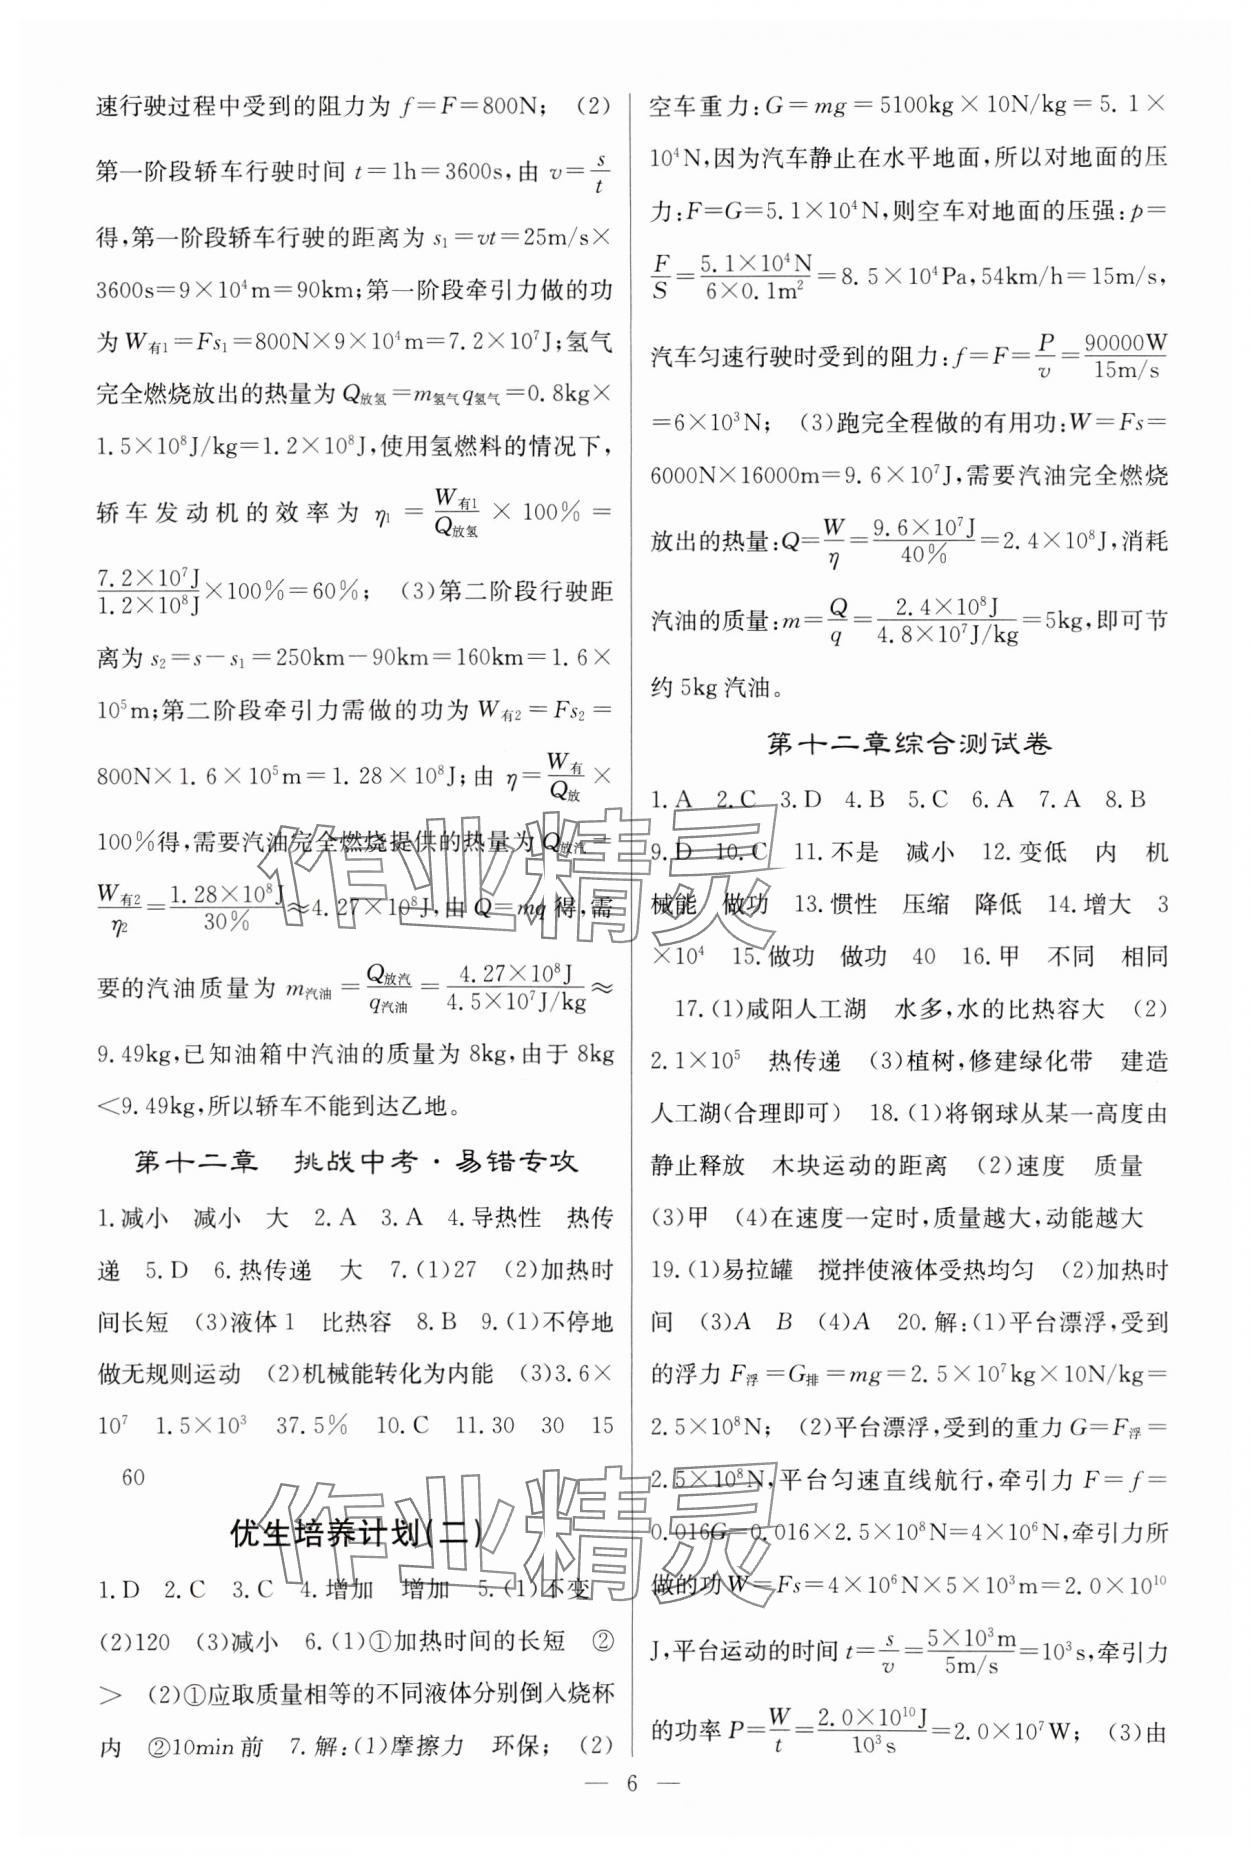 速行驶过程中受到的阻力为 f＝F＝800N； (2)
第一阶段轿车行驶时间 t＝1h＝3600s，由 v＝s/t
得，第一阶段轿车行驶的距离为 s₁＝vt＝25m/s×
3600s＝9×10⁴m＝90km；第一阶段牵引力做的功
为 W有1＝Fs₁＝800N×9×10⁴m＝7.2×10⁷J；氢气
完全燃烧放出的热量为 Q放氢＝m氢气q氢气＝0.8kg×
1.5×10⁸J/kg＝1.2×10⁸J，使用氢燃料的情况下，
轿车发动机的效率为 η₁＝W有1/Q放氢×100％＝
7.2×10⁷J/1.2×10⁸J×100％＝60％； (3)第二阶段行驶距
离为 s₂＝s－s₁＝250km－90km＝160km＝1.6×
10⁵m；第二阶段牵引力需做的功为 W有2＝Fs₂＝
800N×1.6×10⁵m＝1.28×10⁸J；由 η＝W有/Q放×
100％得，需要汽油完全燃烧提供的热量为 Q放汽＝
W有2/η₂＝1.28×10⁸J/30％≈4.27×10⁸J，由 Q＝mq 得，需
要的汽油质量为 m汽油＝Q放汽/q汽油＝4.27×10⁸J/4.5×10⁷J/kg≈
9.49kg，已知油箱中汽油的质量为 8kg，由于 8kg
＜9.49kg，所以轿车不能到达乙地。
第十二章 挑战中考·易错专攻
1.减小 减小 大 2.A 3.A 4.导热性 热传
递 5.D 6.热传递 大 7.(1)27 (2)加热时
间长短 (3)液体1 比热容 8.B 9.(1)不停地
做无规则运动 (2)机械能转化为内能 (3)3.6×
10⁷ 1.5×10³ 37.5％ 10.C 11.30 30 15
60
优生培养计划(二)
1.D 2.C 3.C 4.增加 增加 5.(1)不变
(2)120 (3)减小 6.(1)①加热时间的长短 ②
＞ (2)①应取质量相等的不同液体分别倒入烧杯
内 ②10min前 7.解：(1)摩擦力 环保； (2)
空车重力：G＝mg＝5100kg×10N/kg＝5.1×
10⁴N，因为汽车静止在水平地面，所以对地面的压
力：F＝G＝5.1×10⁴N，则空车对地面的压强：p＝
F/S＝5.1×10⁴N/6×0.1m²＝8.5×10⁴Pa，54km/h＝15m/s，
汽车匀速行驶时受到的阻力：f＝F＝P/v＝90000W/15m/s
＝6×10³N； (3)跑完全程做的有用功：W＝Fs＝
6000N×16000m＝9.6×10⁷J，需要汽油完全燃烧
放出的热量：Q＝W/η＝9.6×10⁷J/40％＝2.4×10⁸J，消耗
汽油的质量：m＝Q/q＝2.4×10⁸J/4.8×10⁷J/kg＝5kg，即可节
约 5kg 汽油。
第十二章综合测试卷
1.A 2.C 3.D 4.B 5.C 6.A 7.A 8.B
9.D 10.C 11.不是 减小 12.变低 内 机
械能 做功 13.惯性 压缩 降低 14.增大 3
×10⁴ 15.做功 做功 40 16.甲 不同 相同
17.(1)咸阳人工湖 水多，水的比热容大 (2)
2.1×10⁵ 热传递 (3)植树，修建绿化带 建造
人工湖(合理即可) 18.(1)将钢球从某一高度由
静止释放 木块运动的距离 (2)速度 质量
(3)甲 (4)在速度一定时，质量越大，动能越大
19.(1)易拉罐 搅拌使液体受热均匀 (2)加热时
间 (3)A B (4)A 20.解：(1)平台漂浮，受到
的浮力 F浮＝G排＝mg＝2.5×10⁷kg×10N/kg＝
2.5×10⁸N； (2)平台漂浮，受到的重力 G＝F浮＝
2.5×10⁸N，平台匀速直线航行，牵引力 F＝f＝
0.016G＝0.016×2.5×10⁸N＝4×10⁶N，牵引力所
做的功 W＝Fs＝4×10⁶N×5×10³m＝2.0×10¹⁰
J，平台运动的时间 t＝s/v＝5×10³m/5m/s＝10³s，牵引力
的功率 P＝W/t＝2.0×10¹⁰J/10³s＝2.0×10⁷W； (3)由
— 6 —
作业精灵
作业精灵